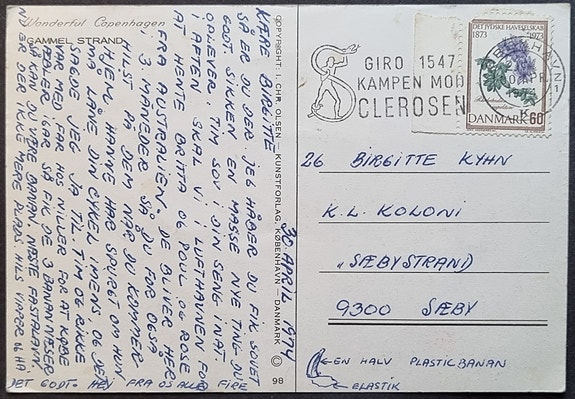 Wonderful Copenhagen
GAMMEL STRAND
COPYRIGHT: I. CHR. OLSEN – KUNSTFORLAG, KØBENHAVN – DANMARK
98
30 APRIL 1974
KÆRE BIRGITTE
SÅ ER DU DER. JEG HÅBER DU FIK SOVET
GODT. SIKKEN EN MASSE NYE TING DU
OPLEVER. TIM SOV I DIN SENG I NAT
I AFTEN SKAL VI I LUFTHAVNEN FOR
AT HENTE BRITTA OG POUL OG ROSE
FRA AUSTRALIEN. DE BLIVER HER
I 3 MÅNEDER SÅ DU FÅR OGSÅ
HILST PÅ DEM NÅR DU KOMMER
HJEM. HANNE HAR SPURGT OM HUN
MÅ LÅNE DIN CYKEL IMENS OG JEG
SAGDE JEG JA TIL. TIM OG RIKKE
VAR MED FOR HOS NILLER FOR AT KØBE
I GÅR SÅ FIK DE 3 BANANNÆSER
SÅ KAN DU VÆRE BANAN. NÆSTE FASTALAVN.
NU ER DER IKKE MERE PLADS. HILS OG HA
DET GODT. HEJ FRA OS ALLE FIRE
GIRO 1547
KAMPEN MOD
SCLEROSEN
KØBENHAVN
DET JYDSKE HAVESELSKAB
1873 1973
DANMARK 60
26 BIRGITTE KYHN
K.L. KOLONI
"SÆBYSTRAND"
9300 SÆBY
EN HALV PLASTICBANAN
ELASTIK